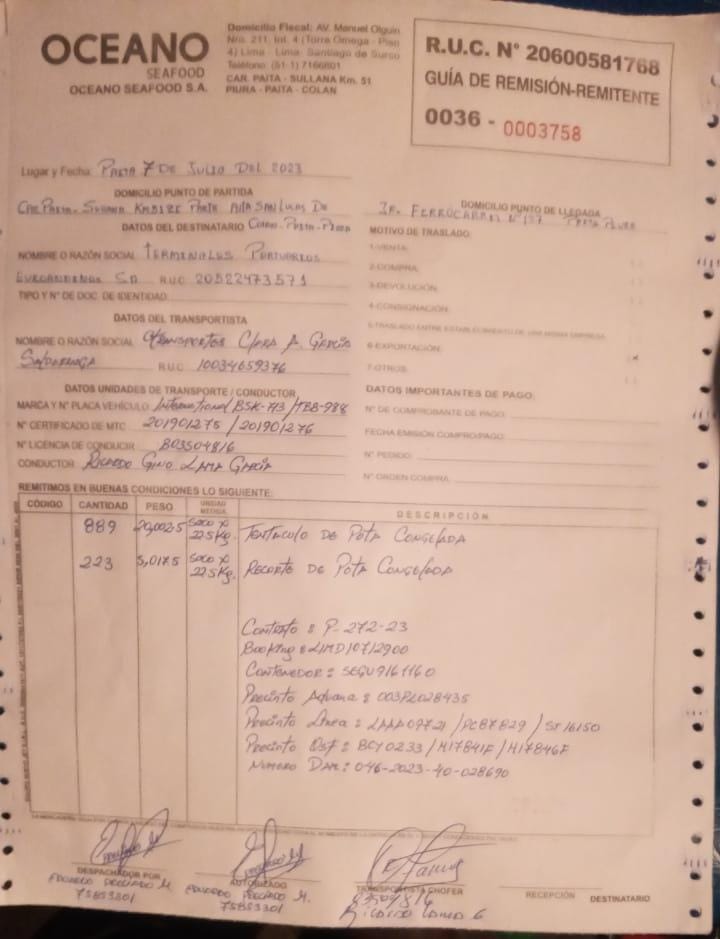 OCEANO
SEAFOOD
OCEANO SEAFOOD S.A.
Domicilio Fiscal: AV. Manuel Olguin
Nro. 211, Int. 4 (Torre Omega - Piso
4) Lima - Lima- Santiago de Surco
Teléfono: (51-1) 7166801
CAR. PAITA - SULLANA Km. 51
PIURA - PAITA - COLAN
R.U.C. N° 20600581768
GUÍA DE REMISIÓN-REMITENTE
0036 - 0003758
Lugar y Fecha: PAITA 7 DE JULIO DEL 2023
DOMICILIO PUNTO DE PARTIDA
DOMICILIO PUNTO DE LLEGADA
JR. FERROCARRIL N° 127 PAITA PIURA
DATOS DEL DESTINATARIO
MOTIVO DE TRASLADO:
NOMBRE O RAZÓN SOCIAL TERMINALES PORTUARIOS
EUROANDINOS SA R.U.C 20522473571
TIPO Y N° DE DOC. DE IDENTIDAD:
1-VENTA:
2-COMPRA:
3-DEVOLUCIÓN:
4-CONSIGNACIÓN:
5-TRASLADO ENTRE ESTABLECIMIENTO DE UNA MISMA EMPRESA
6-EXPORTACIÓN: x
7-OTROS:
DATOS DEL TRANSPORTISTA
NOMBRE O RAZÓN SOCIAL Transportes Clara A. García
Saldarriaga R.U.C 10034659376
DATOS UNIDADES DE TRANSPORTE / CONDUCTOR
MARCA Y N° PLACA VEHÍCULO: International BSK-713/TBB-988
N° CERTIFICADO DE MTC 201901275 / 201901276
N° LICENCIA DE CONDUCIR B03504816
CONDUCTOR Ricardo Gino Lama García
DATOS IMPORTANTES DE PAGO:
N° DE COMPROBANTE DE PAGO:
FECHA EMISIÓN COMPRO/PAGO:
N° PEDIDO:
N° ORDEN COMPRA:
REMITIMOS EN BUENAS CONDICIONES LO SIGUIENTE:
CÓDIGO CANTIDAD PESO UNIDAD MEDIDA DESCRIPCIÓN
889 20,002.5 SACO X 22.5Kg. Tentáculo DE POTA CONGELADA
223 5,017.5 SACO X 22.5Kg. RECORTE DE POTA CONGELADA
Contrato : P-272-23
Booking : LIMD10712900
CONTENEDOR : SEGU9161160
Precinto Aduana : 003PL028435
Precinto Línea : LAAA09721 / PC87829 / SF16150
Precinto Osf : BCY0233 / M17841F / M17846F
NUMERO DAM : 046-2023-40-028690
DESPACHADOR POR
EDUARDO PRECIADO M.
75853301
AUTORIZADO
EDUARDO PRECIADO M.
75853301
TRANSPORTISTA CHOFER
03504816
Ricardo Lama G
RECEPCIÓN DESTINATARIO